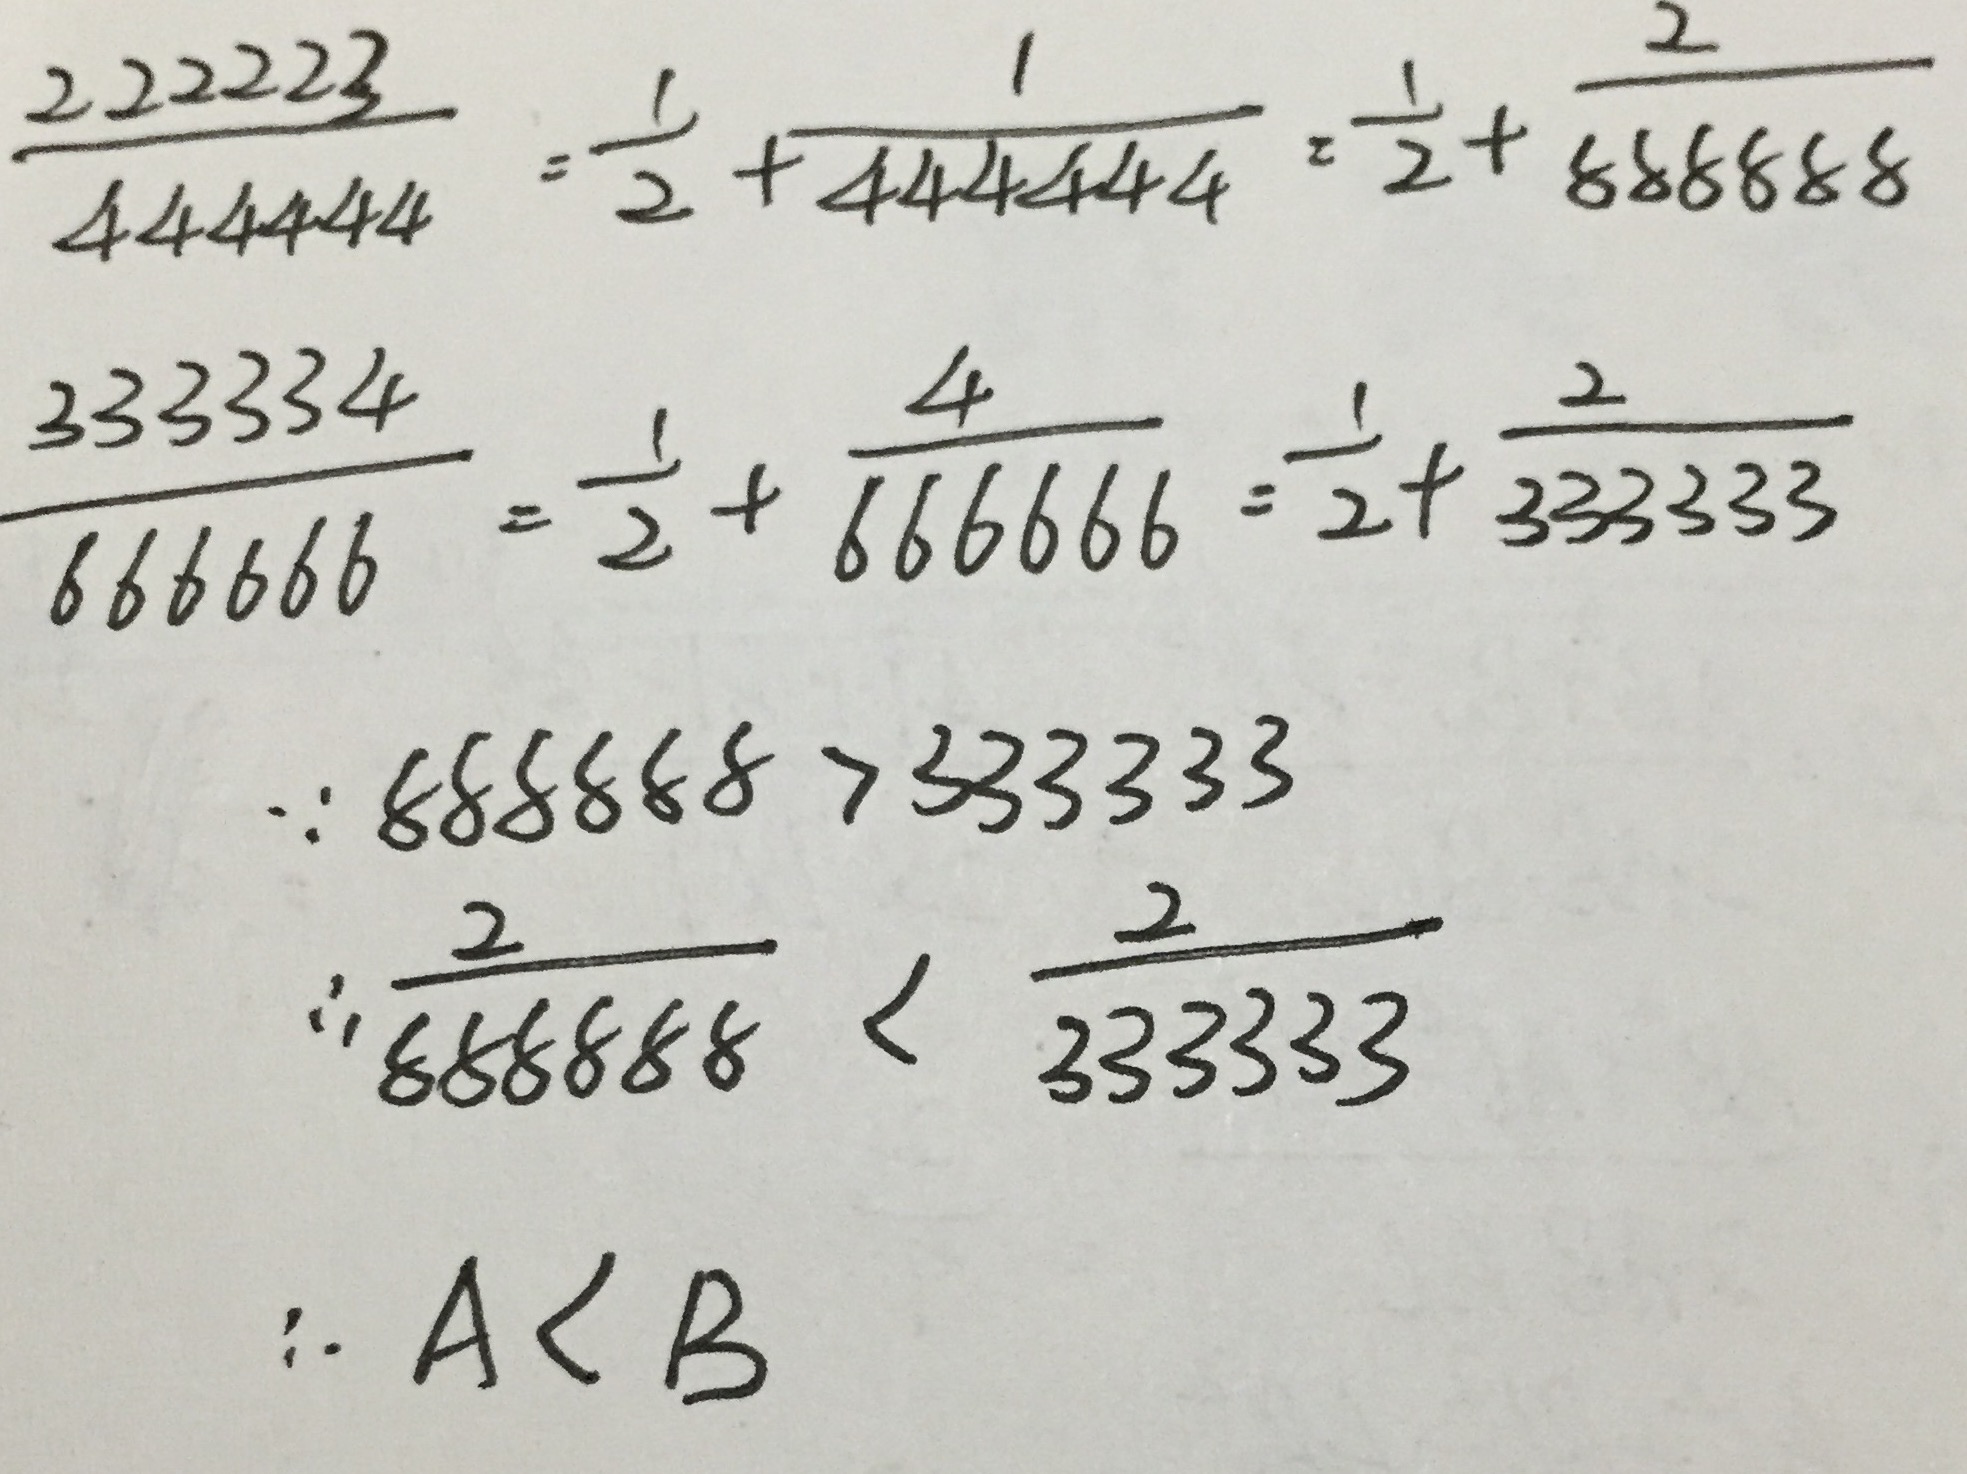 222223/444444 = 1/2 + 1/444444 = 1/2 + 2/888888
333334/666666 = 1/2 + 4/666666 = 1/2 + 2/333333
∵ 888888 > 333333
∴ 2/888888 < 2/333333
∴ A < B